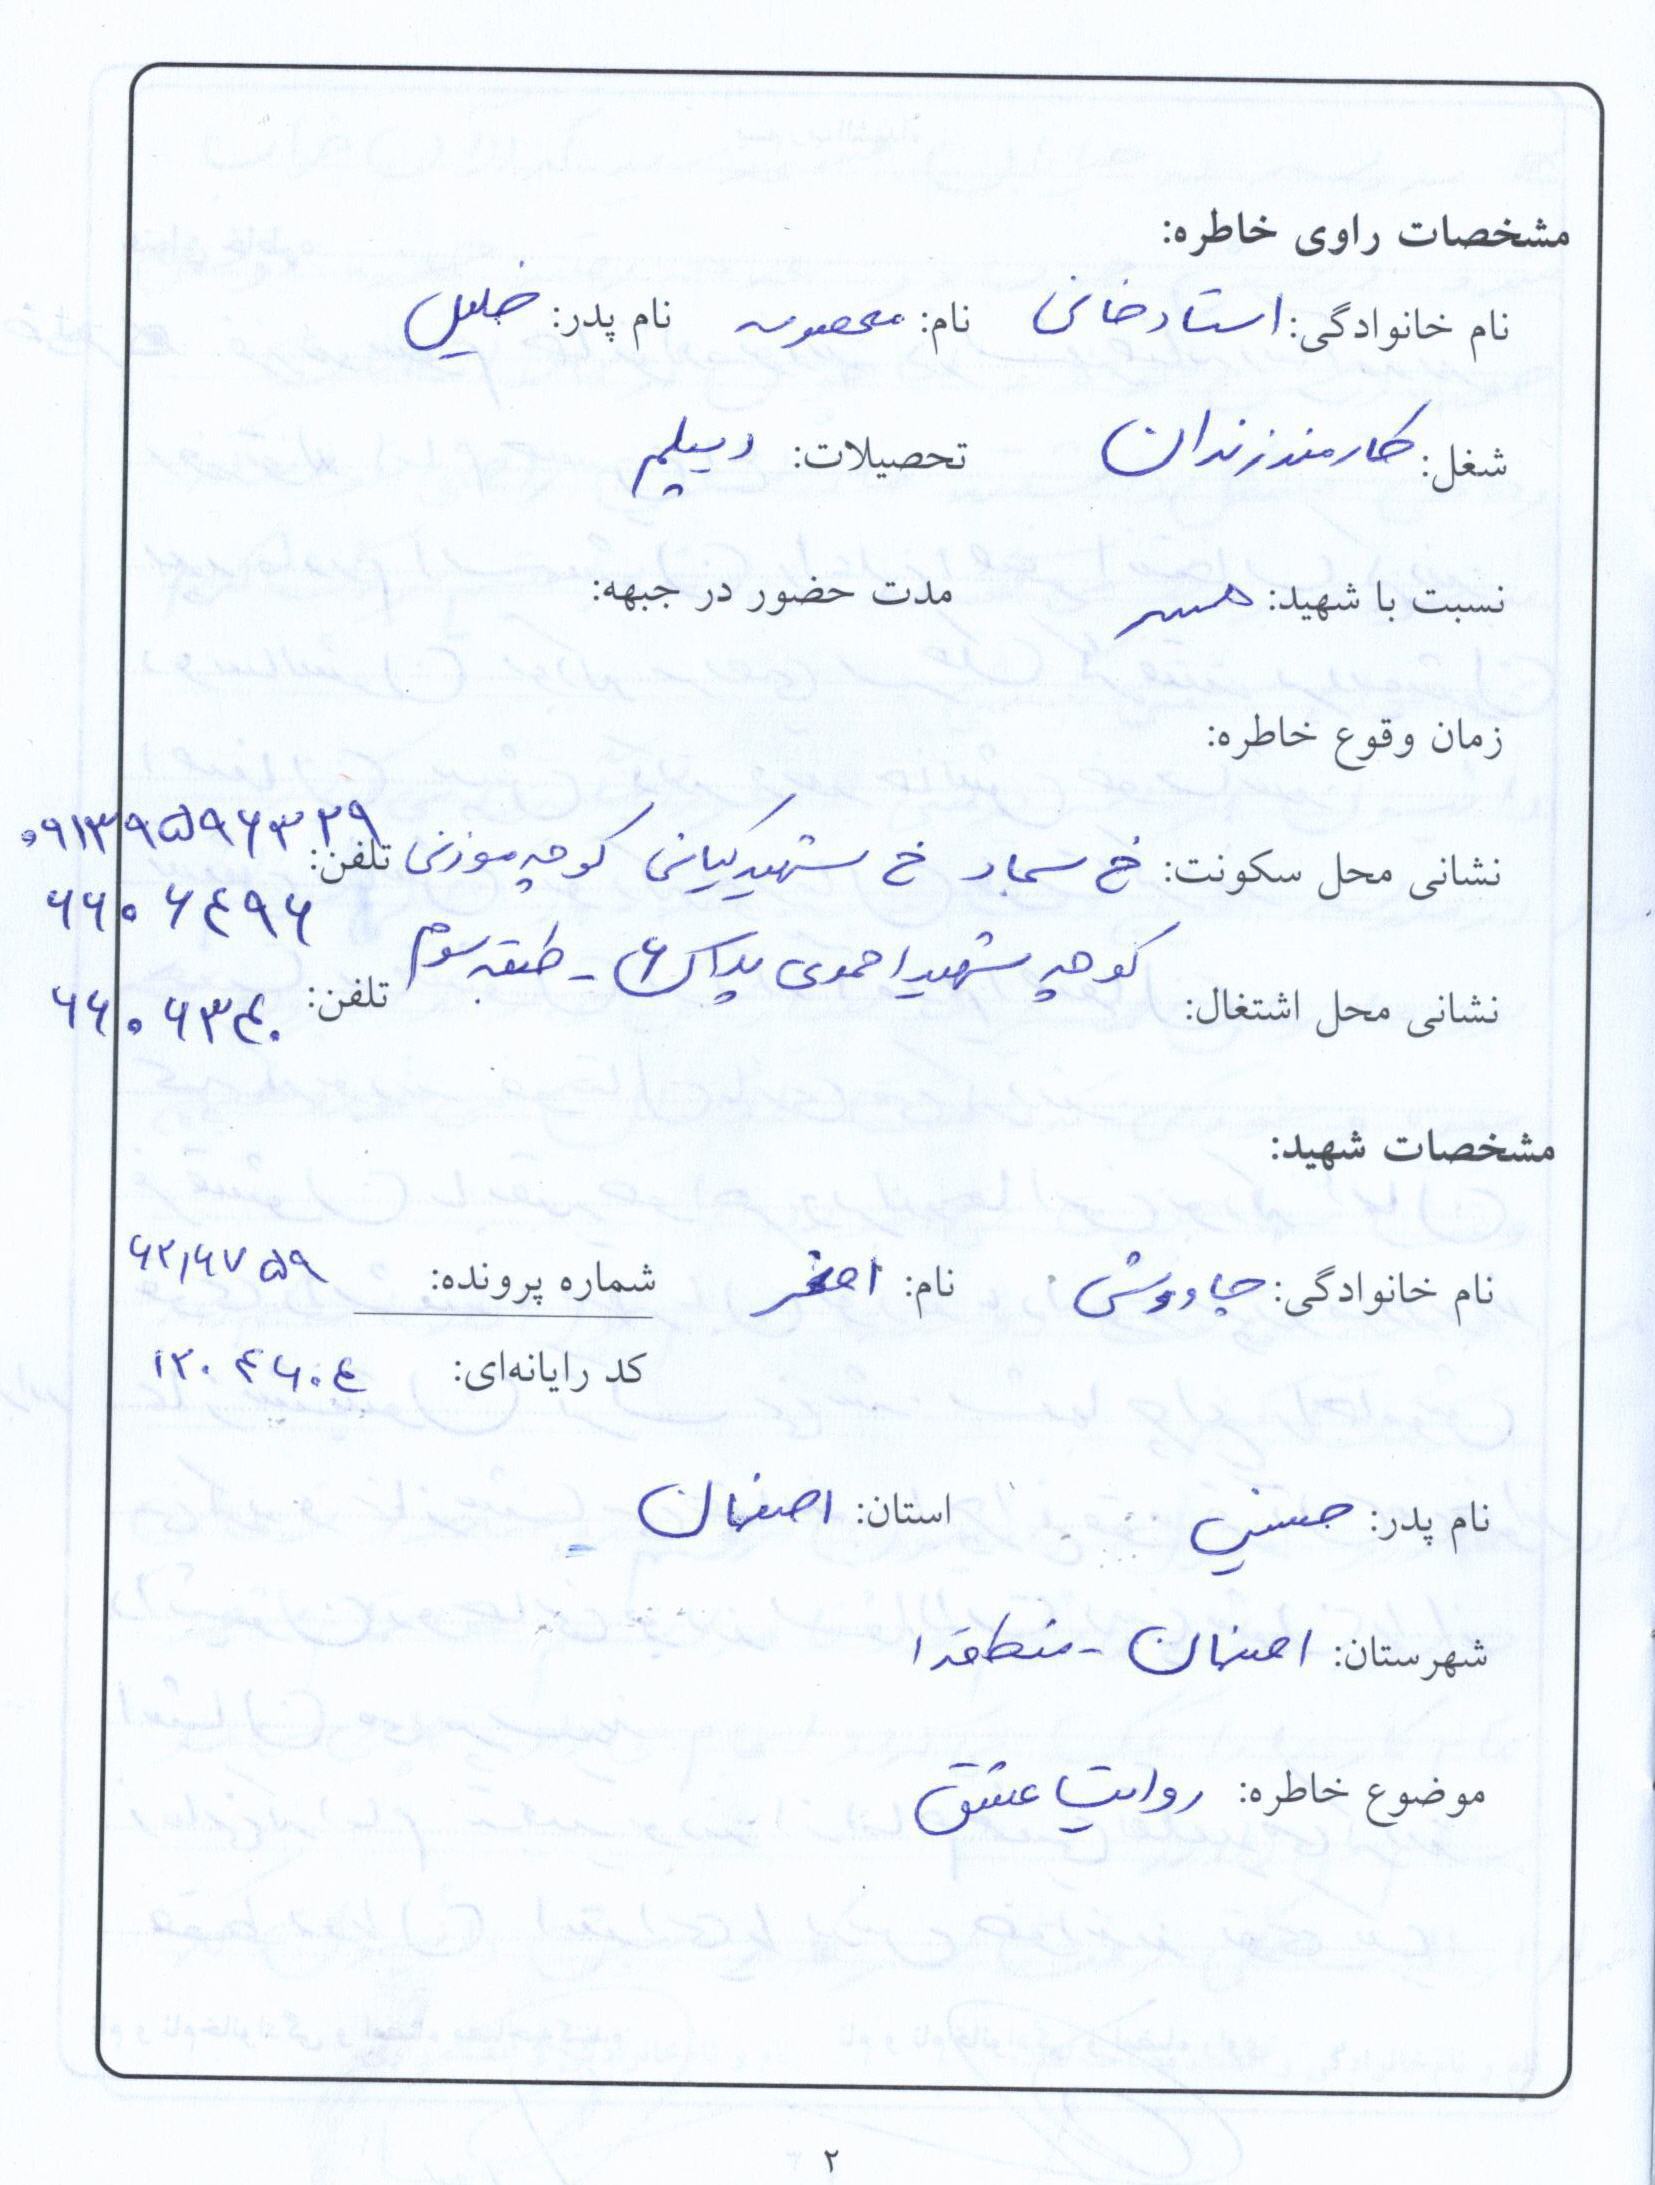 مشخصات راوی خاطره:
نام خانوادگی: استادخانی نام: معصومه نام پدر: خلیل
شغل: کارمند زندان تحصیلات: دیپلم
نسبت با شهید: همسر مدت حضور در جبهه:
زمان وقوع خاطره:
نشانی محل سکونت: خ سجاد خ شهید کیانی کوچه موزنی تلفن: ۰۹۱۳۹۵۹۶۳۲۹
۶۶۰۶۴۹۶
کوچه شهید احمدی پلاک ۶ - طبقه سوم
نشانی محل اشتغال: تلفن: ۶۶۰۶۳۴۰
مشخصات شهید:
نام خانوادگی: چاووشی نام: اصغر شماره پرونده: ۶۲۱۶۷۵۹
کد رایانه‌ای: ۱۲۰۴۶۰۴
نام پدر: حسین استان: اصفهان
شهرستان: اصفهان - منطقه ۱
موضوع خاطره: روایت عشق
۲